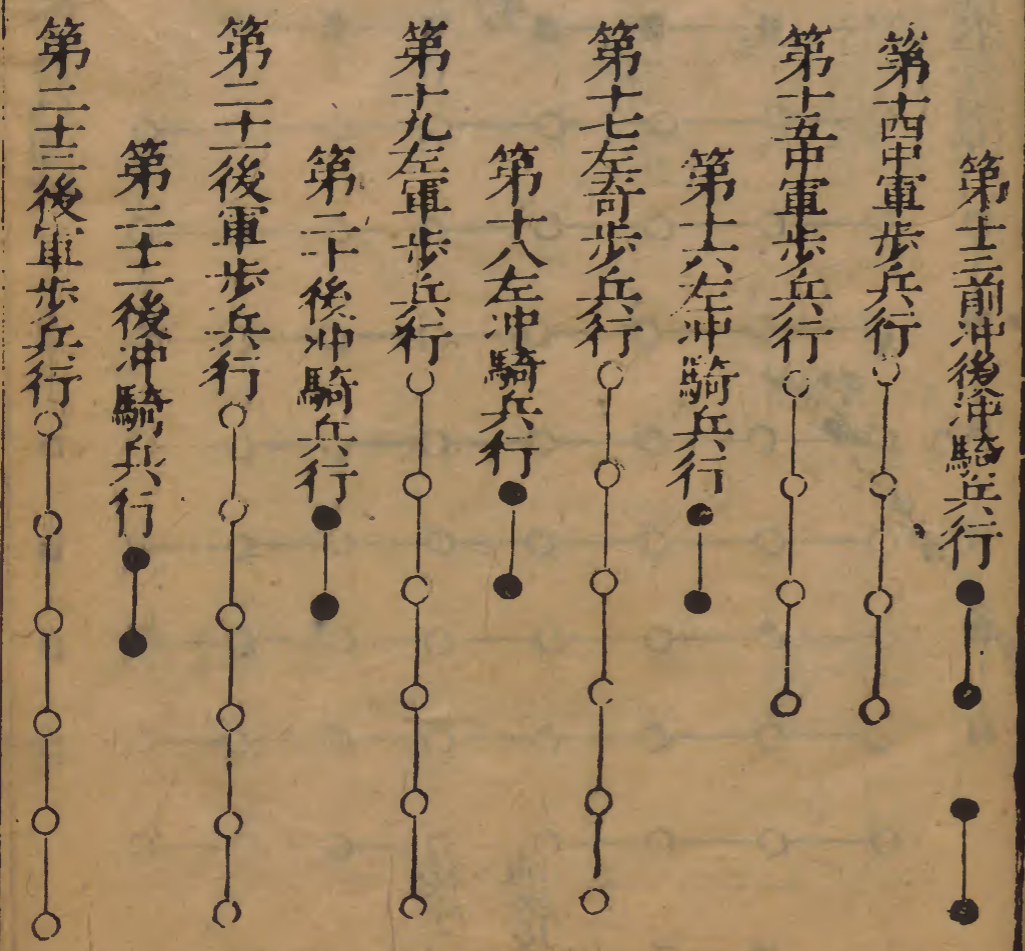 第十三前冲後冲騎兵行
第十四中軍步兵行
第十五中軍步兵行
第十六左冲騎兵行
第十七左竒步兵行
第十八左冲騎兵行
第十九左軍步兵行
第二十後冲騎兵行
第二十一後軍步兵行
第二十二後冲騎兵行
第二十三後軍步兵行